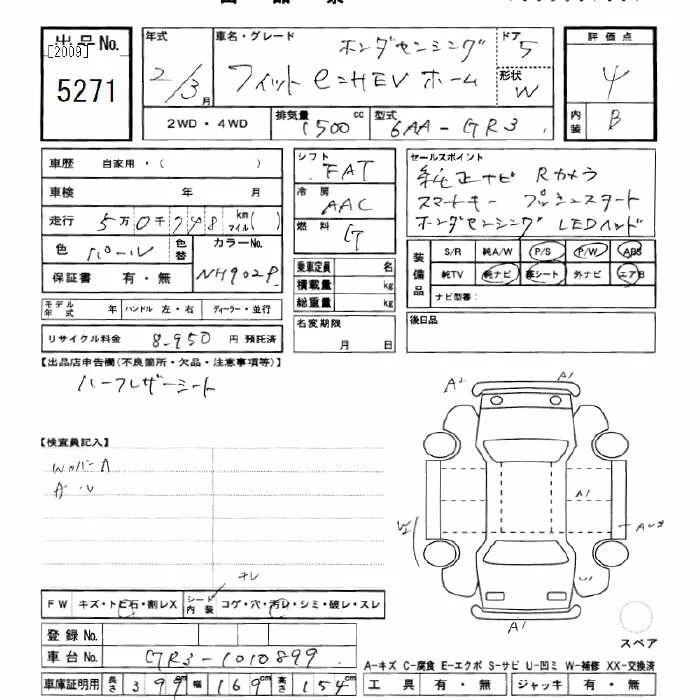 出品No.
[2009]
5271
年式
2/3月
車名・グレード
ホンダセンシング
フィット e:HEV ホーム
ドア
5
形状
W
評価点
4
内装
B
2WD・4WD
排気量
1500 cc
型式
6AA-GR3
車歴 自家用・( )
車検 年 月
走行 5万0千748 km マイル( )
色 パール
色替
カラーNo.
NH902P
保証書 有・無
モデル年式 年 ハンドル 左・右 ディーラー・並行
リサイクル料金 8,950 円 預託済
シフト
FAT
冷房
AAC
燃料
G
乗車定員 名
積載量 kg
総重量 kg
名変期限
月 日
セールスポイント
純正ナビ Rカメラ
スマートキー プッシュスタート
ホンダセンシング LEDヘッド
装備品
S/R 純A/W P/S P/W ABS
純TV 純ナビ 革シート 外ナビ エアB
ナビ型番:
後日品
【出品店申告欄(不良箇所・欠品・注意事項等)】
ハーフレザーシート
【検査員記入】
A2
A1
A1
A1
FW キズ・トビ石・割レX
シート内装 コゲ・穴・汚レ・シミ・破レ・スレ
登録No.
車台No. GR3-1010899
車庫証明用 長さ 399cm 幅 169cm 高さ 154cm
スペア
A-キズ C-腐食 E-エクボ S-サビ U-凹ミ W-補修 XX-交換済
工具 有・無 ジャッキ 有・無